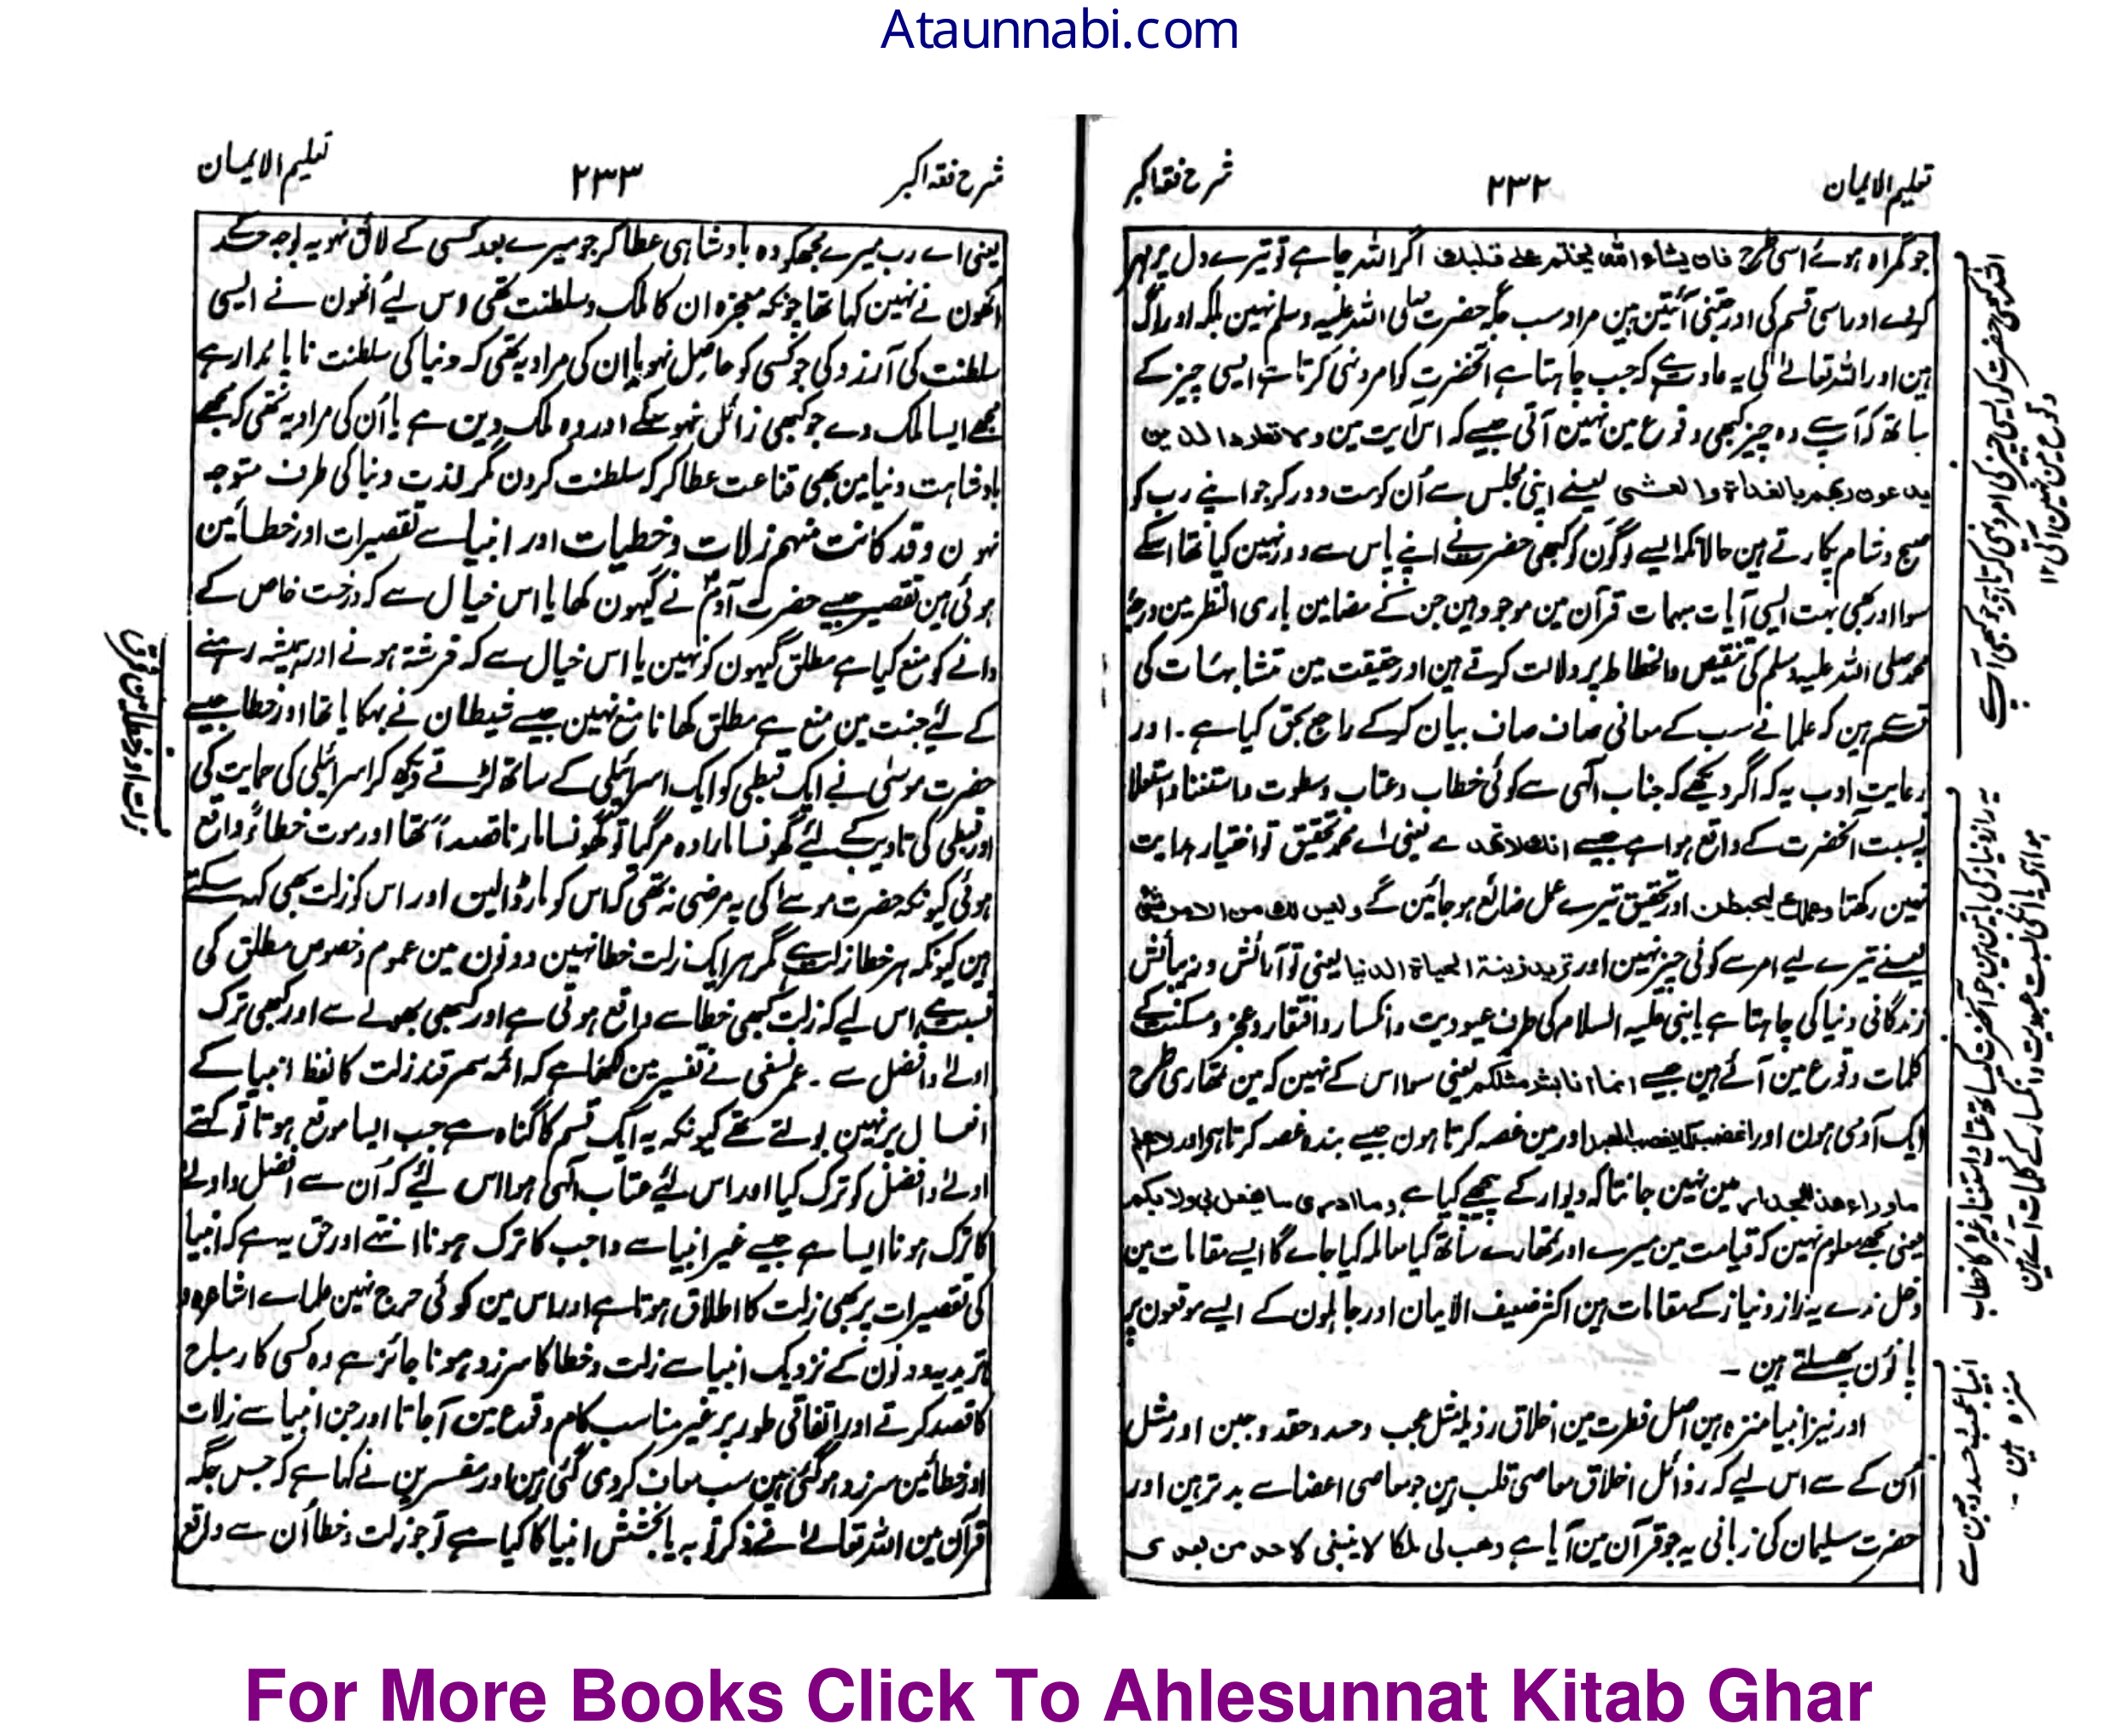 Ataunnabi.com
تعلیم الایمان ۲۳۲ شرح فقہ اکبر
جو گمراہ ہوئے اسی طرح فان یشاء اللہ یختم علے قلبک اگر اللہ چاہے تو تیرے دل پر مہر
کردے اور اسی قسم کی اور جتنی آئتین ہین مراد سب جگہ حضرت صلی اللہ علیہ وسلم نہین بلکہ اور لوگ
ہین اور اللہ تعالےٰ کی یہ عادت ہے کہ جب چاہتا ہے آنحضرت کو امر و نہی کرتا ہے ایسی چیز کے
ساتھ کہ آپ سے وہ چیز کبھی وقوع مین نہین آتی جیسے کہ اس آیت مین ولا تطرد الذین
یدعون ربھم بالغداۃ والعشی یعنے اپنی مجلس سے اُن کو مت دور کر جو اپنے رب کو
صبح و شام پکارتے ہین حالانکہ ایسے لوگون کو کبھی حضرت نے اپنے پاس سے دور نہین کیا تھا اسکے
سوا اور بھی بہت ایسی آیات مبہمات قرآن مین موجود ہین جن کے مضامین بادی النظر مین درجۂ
محمد صلی اللہ علیہ وسلم کی تنقیص و انحطاط پر دلالت کرتے ہین اور حقیقت مین متشابہات کی
قسم ہین کہ علما نے سب کے معانی صاف صاف بیان کرکے راجع بحق کیا ہے۔ اور
رعایت ادب یہ کہ اگر دیکھے کہ جناب الٰہی سے کوئی خطاب و عتاب و سطوت و استغنا و استعلا
بہ نسبت آنحضرت کے واقع ہوا ہے جیسے انک لا تھدے یعنی اے محمد تحقیق تو اختیار ہدایت
نہین رکھتا و لیحبطن عملک اور تحقیق تیرے عمل ضائع ہو جائین گے و لیس لک من الامر شئ
یعنے تیرے لیے امر سے کوئی چیز نہین اور ترید زینۃ الحیاۃ الدنیا یعنی تو آرائش و زیبائش
زندگانی دنیا کی چاہتا ہے یا نبی علیہ السلام کی طرف عبودیت و انکسار و افتقار و عجز و مسکنت کے
کلمات وقوع مین آئے ہین جیسے انما انا بشر مثلکم یعنی سوا اس کے نہین کہ مین تمھاری طرح
ایک آدمی ہون اور اغضب کما یغضب العبد اور مین غصہ کرتا ہون جیسے بندہ غصہ کرتا ہے اور لا اعلم
ما وراء ھذا الجدار مین نہین جانتا کہ دیوار کے پیچھے کیا ہے و ما ادری ما یفعل بی ولا بکم
یعنی مجھے معلوم نہین کہ قیامت مین میرے اور تمھارے ساتھ کیا معاملہ کیا جاے گا ایسے مقامات مین
دخل نہ دے یہ راز و نیاز کے مقامات ہین اکثر ضعیف الایمان اور جاہلون کے ایسے موقعون پر
پاؤن پھسلتے ہین ۔
اور نیز انبیا منزہ ہین اصل فطرت مین اخلاق رذیلہ مثل عجب و حسد و حقد و جبن اور مثل
اُن کے سے اس لیے کہ رذائل اخلاق معاصی قلب ہین جو معاصی اعضا سے بدتر ہین اور
حضرت سلیمان کی زبانی یہ جو قرآن مین آیا ہے وھب لی ملکا لا ینبغی لاحد من بعدی
اللہ کبھی حضرت کو ایسی چیز کی امر و نہی کرتا ہے جو کبھی آپ سے
وقوع مین نہین آئی ۱۲
یہ راز و نیاز کی باتین ہین جو آنحضرت کے ساتھ عتاب و استغنا وغیرہ کا خطاب
ہوا ہے یا انکی نسبت عبودیت و انکسار کے کلمات آے ہین
انبیا عجب حسد و جبن سے
منزہ ہین ۔
شرح فقہ اکبر ۲۳۳ تعلیم الایمان
یعنی اے رب میرے مجھکو وہ بادشاہی عطا کر جو میرے بعد کسی کے لائق نہو یہ بوجہ حسد
اُنھون نے نہین کہا تھا چونکہ معجزہ ان کا ملک و سلطنت تھی اس لیے اُنھون نے ایسی
سلطنت کی آرزو کی جو کسی کو حاصل نہو یا ان کی مراد یہ تھی کہ دنیا کی سلطنت ناپائدار ہے
مجھے ایسا ملک دے جو کبھی زائل نہو سکے اور وہ ملک دین ہے یا اُن کی مراد یہ تھی کہ مجھے
بادشاہت دنیا مین بھی قناعت عطا کر کہ سلطنت کرون مگر لذت دنیا کی طرف متوجہ
نہون وقد کانت منھم زلات وخطیات اور انبیا سے تقصیرات اور خطائین
ہوئی ہین تقصیر جیسے حضرت آدمؑ نے گیہون کھایا اس خیال سے کہ درخت خاص کے
دانے کو منع کیا ہے مطلق گیہون کو نہین یا اس خیال سے کہ فرشتہ ہونے اور ہمیشہ رہنے
کے لئے جنت مین منع ہے مطلق کھانا منع نہین جیسے شیطان نے بہکایا تھا اور خطا جیسے
حضرت موسٰی نے ایک قبطی کو ایک اسرائیلی کے ساتھ لڑتے دیکھ کر اسرائیلی کی حمایت کی
اور قبطی کی تادیب کے لئے گھونسا مارا وہ مر گیا تو گھونسا مارنا قصداً تھا اور موت خطاءً واقع
ہوئی کیونکہ حضرت موسےٰ کی یہ مرضی نہ تھی کہ اس کو مار ڈالین اور اس کو زلت بھی کہہ سکتے
ہین کیونکہ ہر خطا زلت ہے مگر ہر ایک زلت خطا نہین دونون مین عموم و خصوص مطلق کی
نسبت ہے اس لیے کہ زلت کبھی خطا سے واقع ہوتی ہے اور کبھی بھولے سے اور کبھی ترک
اولےٰ و افضل سے ۔ عمر نسفی نے تفسیر مین لکھا ہے کہ ائمہ سمرقند زلت کا لفظ انبیا کے
افعال پر نہین بولتے تھے کیونکہ یہ ایک قسم کا گناہ ہے جب ایسا موقع ہوتا تو کہتے
اولےٰ و افضل کو ترک کیا اور اس لئے عتاب الٰہی ہوا اس لئے کہ اُن سے افضل و اولےٰ
کا ترک ہونا ایسا ہے جیسے غیر انبیا سے واجب کا ترک ہونا انتہے اور حق یہ ہے کہ انبیا
کی تقصیرات پر بھی زلت کا اطلاق ہوتا ہے اور اس مین کوئی حرج نہین علماے اشاعرہ و
ماتریدیہ دونون کے نزدیک انبیا سے زلت و خطا کا سرزد ہونا جائز ہے وہ کسی کار مباح
کا قصد کرتے اور اتفاقی طور پر غیر مناسب کام وقوع مین آجاتا اور جن انبیا سے زلات
اور خطائین سرزد ہوگئی ہین سب معاف کردی گئی ہین اور مفسرین نے کہا ہے کہ جس جگہ
قرآن مین اللہ تعالےٰ نے ذکر توبہ یا بخشش انبیا کا کیا ہے تو جو زلت و خطا اُن سے واقع
زلت اور خطا مین فرق
For More Books Click To Ahlesunnat Kitab Ghar